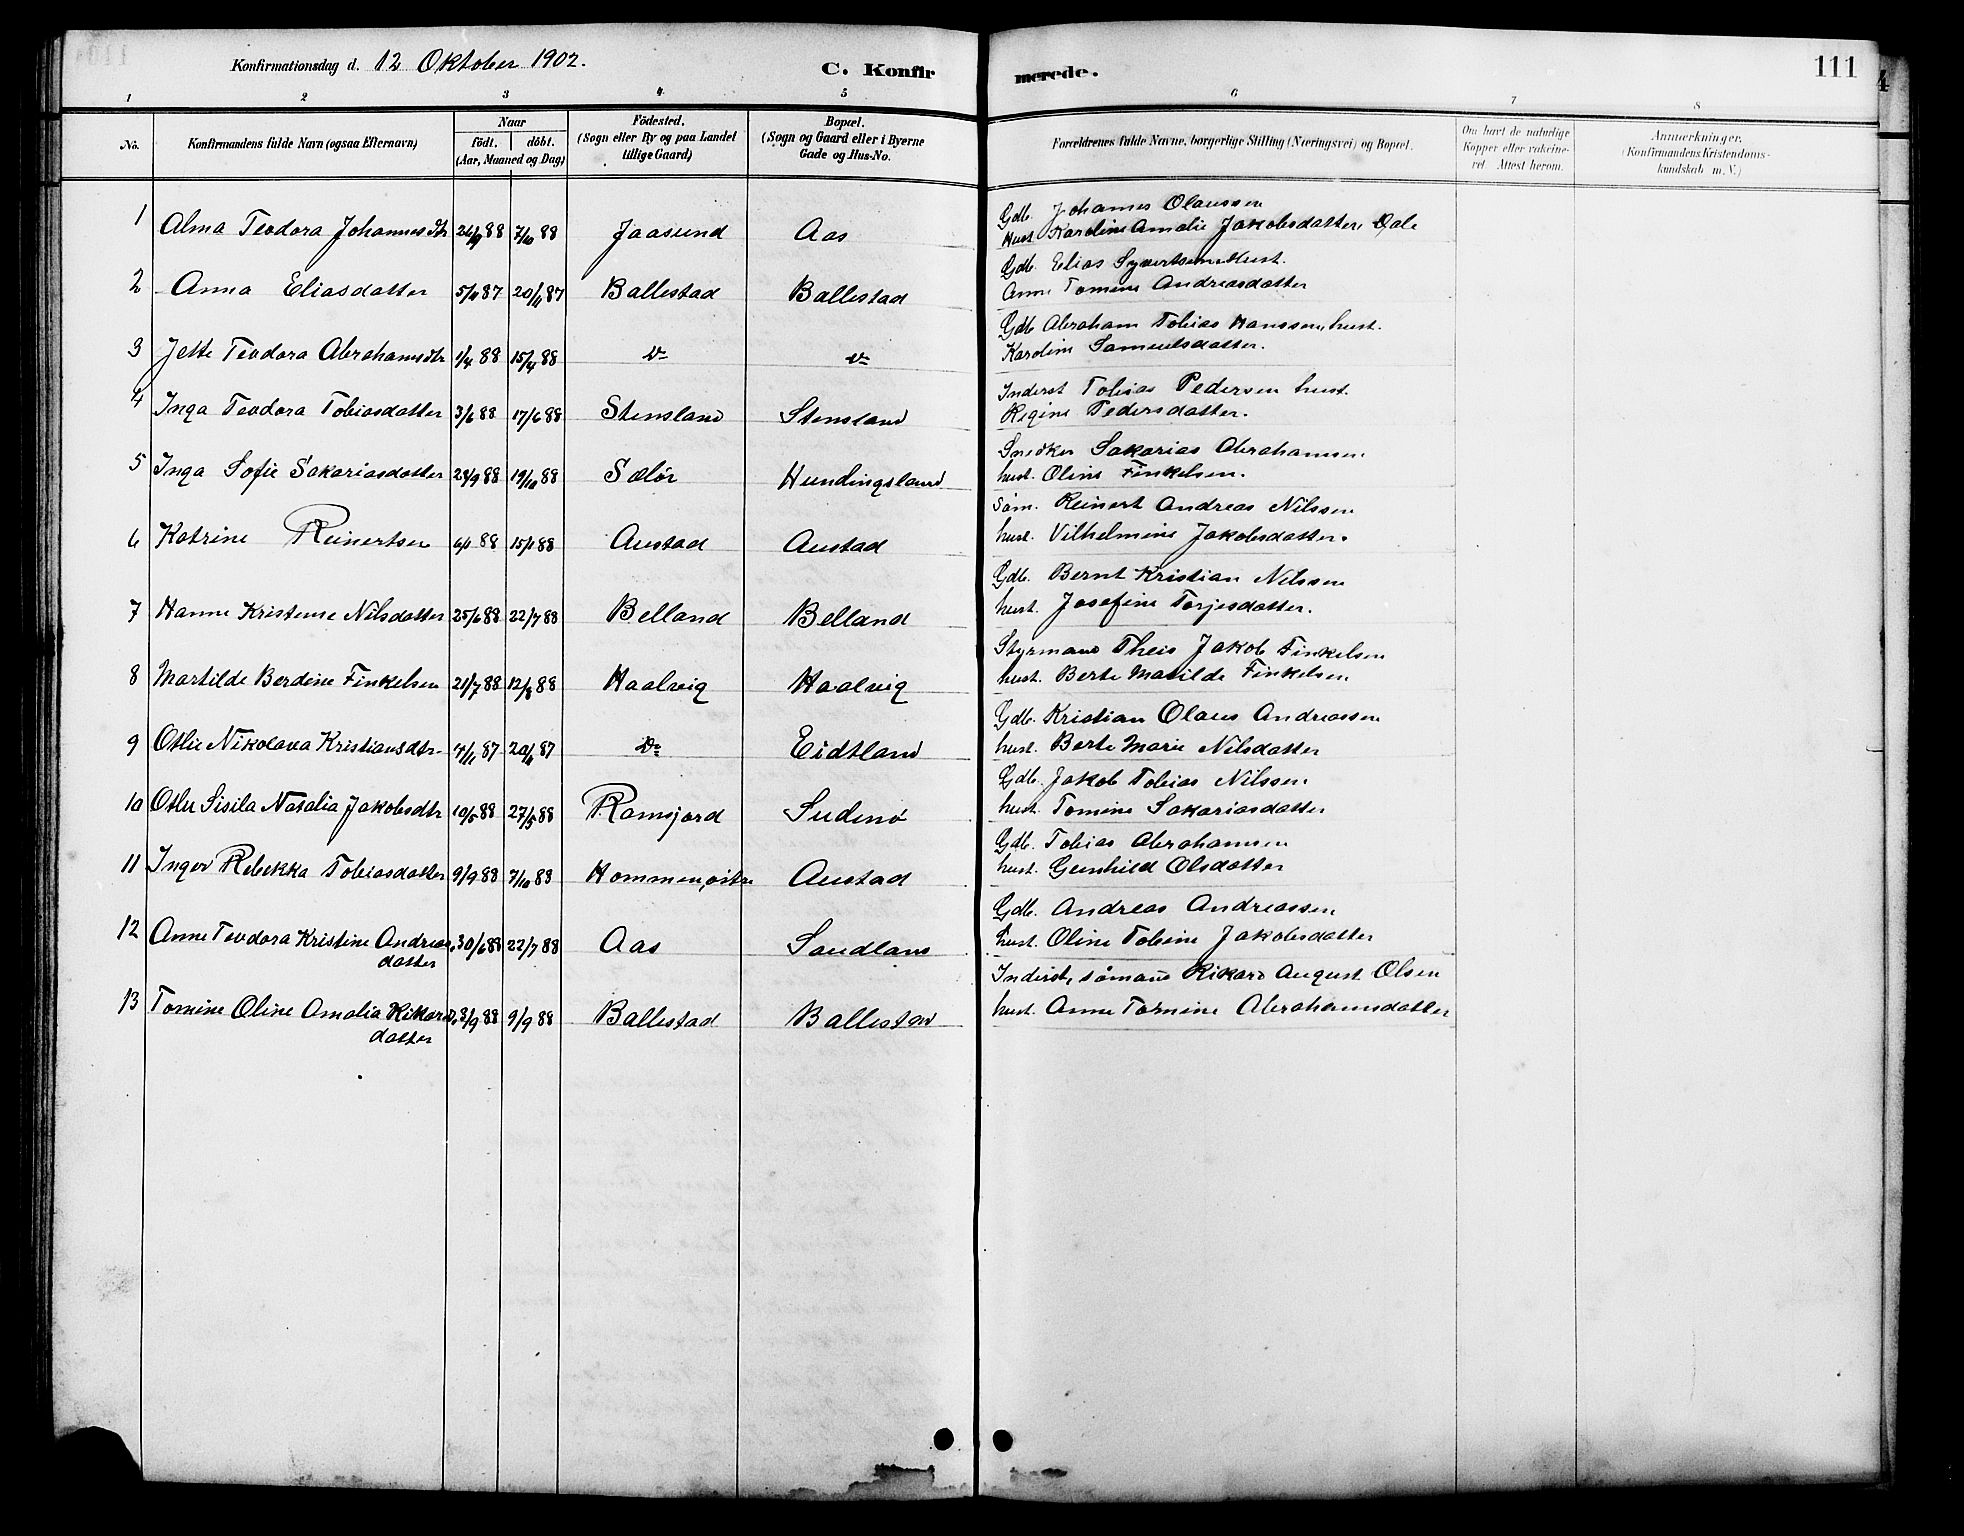 Konfirmationsdag d. 12 Oktober 1902.
C. Konfirmerede.
111
1 2 3 4 5 6 7 8
No.
Konfirmandens fulde Navn (ogsaa Efternavn)
Naar
födt. döbt.
(Aar, Maaned og Dag)
Födested.
(Sogn eller By og paa Landet
tillige Gaard)
Bopæl.
(Sogn og Gaard eller i Byerne
Gade og Hus-No.
Forældrenes fulde Navne, borgerlige Stilling (Næringsvei) og Bopæl.
Om havt de naturlige
Kopper eller vakcine-
ret Attest herom.
Anmærkninger.
(Konfirmandens Kristendoms-
kundskab m. V.)
1 Alma Teodora Johannesdtr 26/9 88 7/10 88 Jaasund Aas
Gdb. Johannes Olaussen
Hust Karoline Amalie Jakobsdatter Dale
2 Anna Eliasdatter 5/11 87 20/11 87 Ballestad Ballestad
Gdb. Elias Syvertsen Hust.
Anne Tomine Andreasdatter
3 Jette Teodora Abrahamsdtr 1/4 88 15/4 88 do do
Gdb Abraham Tobias Hanssen, hust.
Karoline Samuelsdatter.
4 Inga Teodora Tobiasdatter 3/6 88 17/6 88 Stensland Stensland
Inderst Tobias Pedersen hust.
Regine Pedersdatter.
5 Inga Sofie Sakariasdatter 28/9 88 19/10 88 Sælör Hundingsland
Snedker Sakarias Abrahamsen
hust. Oline Finkelsen.
6 Katrine Reinertsen 6/1 88 15/1 88 Austad Austad
Söm. Reinert Andreas Nilssen
hust. Vilhelmine Jakobsdatter.
7 Hanne Kristense Nilsdatter 25/6 88 22/7 88 Belland Belland
Gdb. Bernt Kristian Nilssen
hust. Josefine Torjesdatter.
8 Martilde Berdine Finkelsen 21/7 88 12/8 88 Haalvig Haalvig
Styrmand Theis Jakob Finkelsen
hust. Berte Matilde Finkelsen
9 Otlie Nikolava Kristiansdtr. 4/11 87 20/11 87 do Eidtland
Gdb. Kristian Olaus Andreassen
hust. Berte Marie Nilsdatter
10 Otlie Sisila Natalia Jakobsdtr 10/5 88 27/5 88 Ramsjord Sudinö
Gdb. Jakob Tobias Nilssen
hust. Tomine Sakariasdatter
11 Inger Rebekka Tobiasdatter 9/9 88 7/10 88 Hommen, östre Austad
Gdb. Tobias Abrahamsen
hust. Gunhild Olsdatter
12 Anne Teodora Kristine Andreas- 30/6 88 22/7 88 Aas Sandland
datter
Gdb. Andreas Andreassen
hust. Oline Tobine Jakobsdatter
13 Tomine Oline Amalia Rikards- 3/9 88 9/9 88 Ballestad Ballestad
datter
Inderst, sömand Rikard August Olsen
hust. Anne Tomine Abrahamsdatter